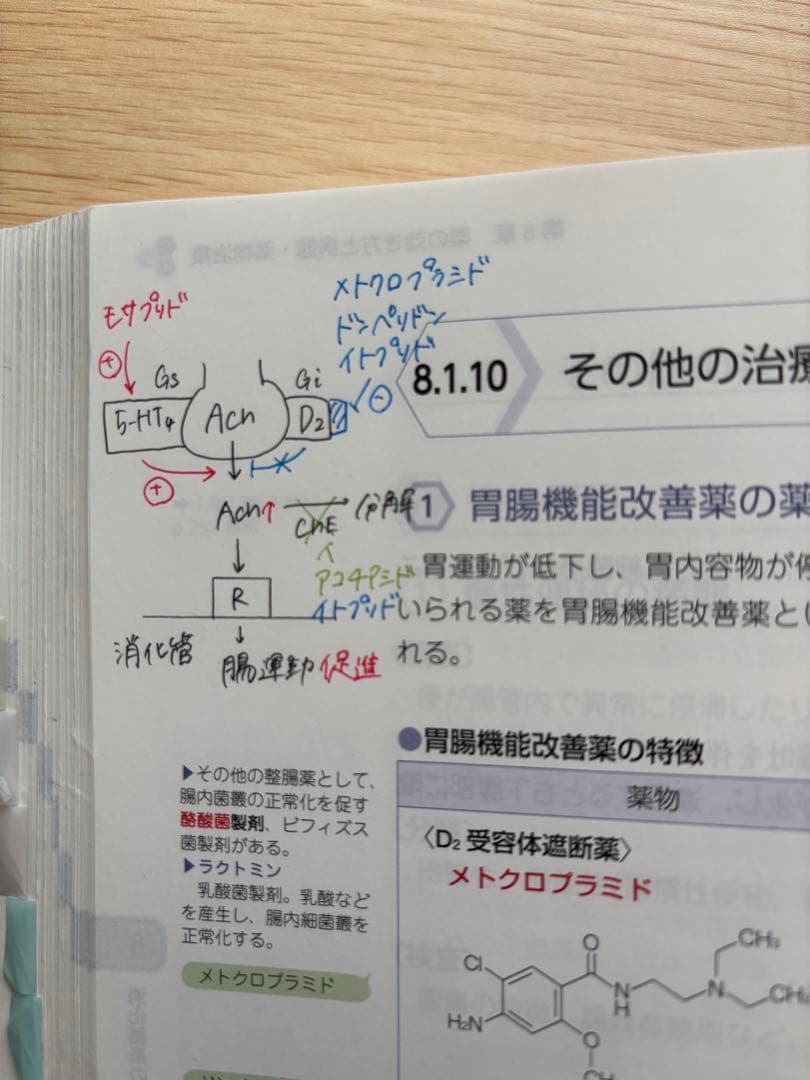 メトクロプラミド
モサプリド
ドンペリドン
イトプリド
⊕
Gs
Gi
⊖
5-HT4
Ach
D2
⊕
Ach↑
ChE
分解
アコチアミド
イトプリド
R
消化管
腸運動促進
8.1.10
その他の治療
1 胃腸機能改善薬の薬
胃運動が低下し、胃内容物が停
いられる薬を胃腸機能改善薬とい
れる。
●胃腸機能改善薬の特徴
薬物
〈D2 受容体遮断薬〉
メトクロプラミド
Cl
O
N
H
N
CH3
CH3
H2N
O
▶その他の整腸薬として、
腸内菌叢の正常化を促す
酪酸菌製剤、ビフィズス
菌製剤がある。
▶ラクトミン
乳酸菌製剤。乳酸など
を産生し、腸内細菌叢を
正常化する。
メトクロプラミド